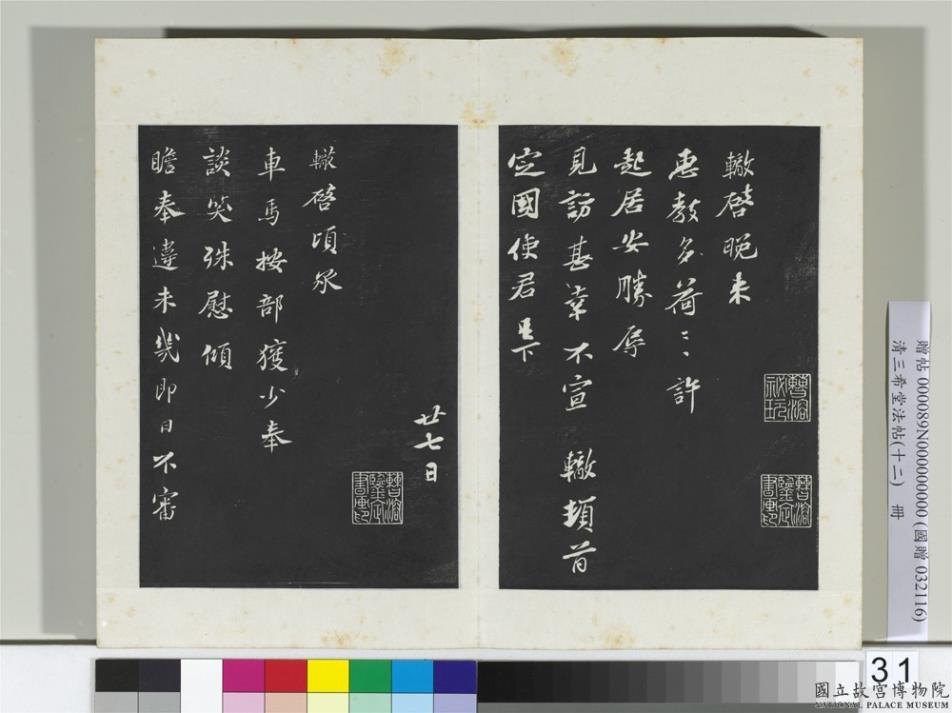 轍啓晚來
惠教多荷〻許
起居安勝辱
見訪甚幸不宣 轍頓首
定國使君足下
廿七日
轍啓頃承
車馬按部獲少奉
談笑殊慰傾
瞻奉違未幾即日不審
贈帖 000089N000000000 (國贈 032116)
清三希堂法帖(十二) 冊
31
國立故宮博物院
NATIONAL PALACE MUSEUM